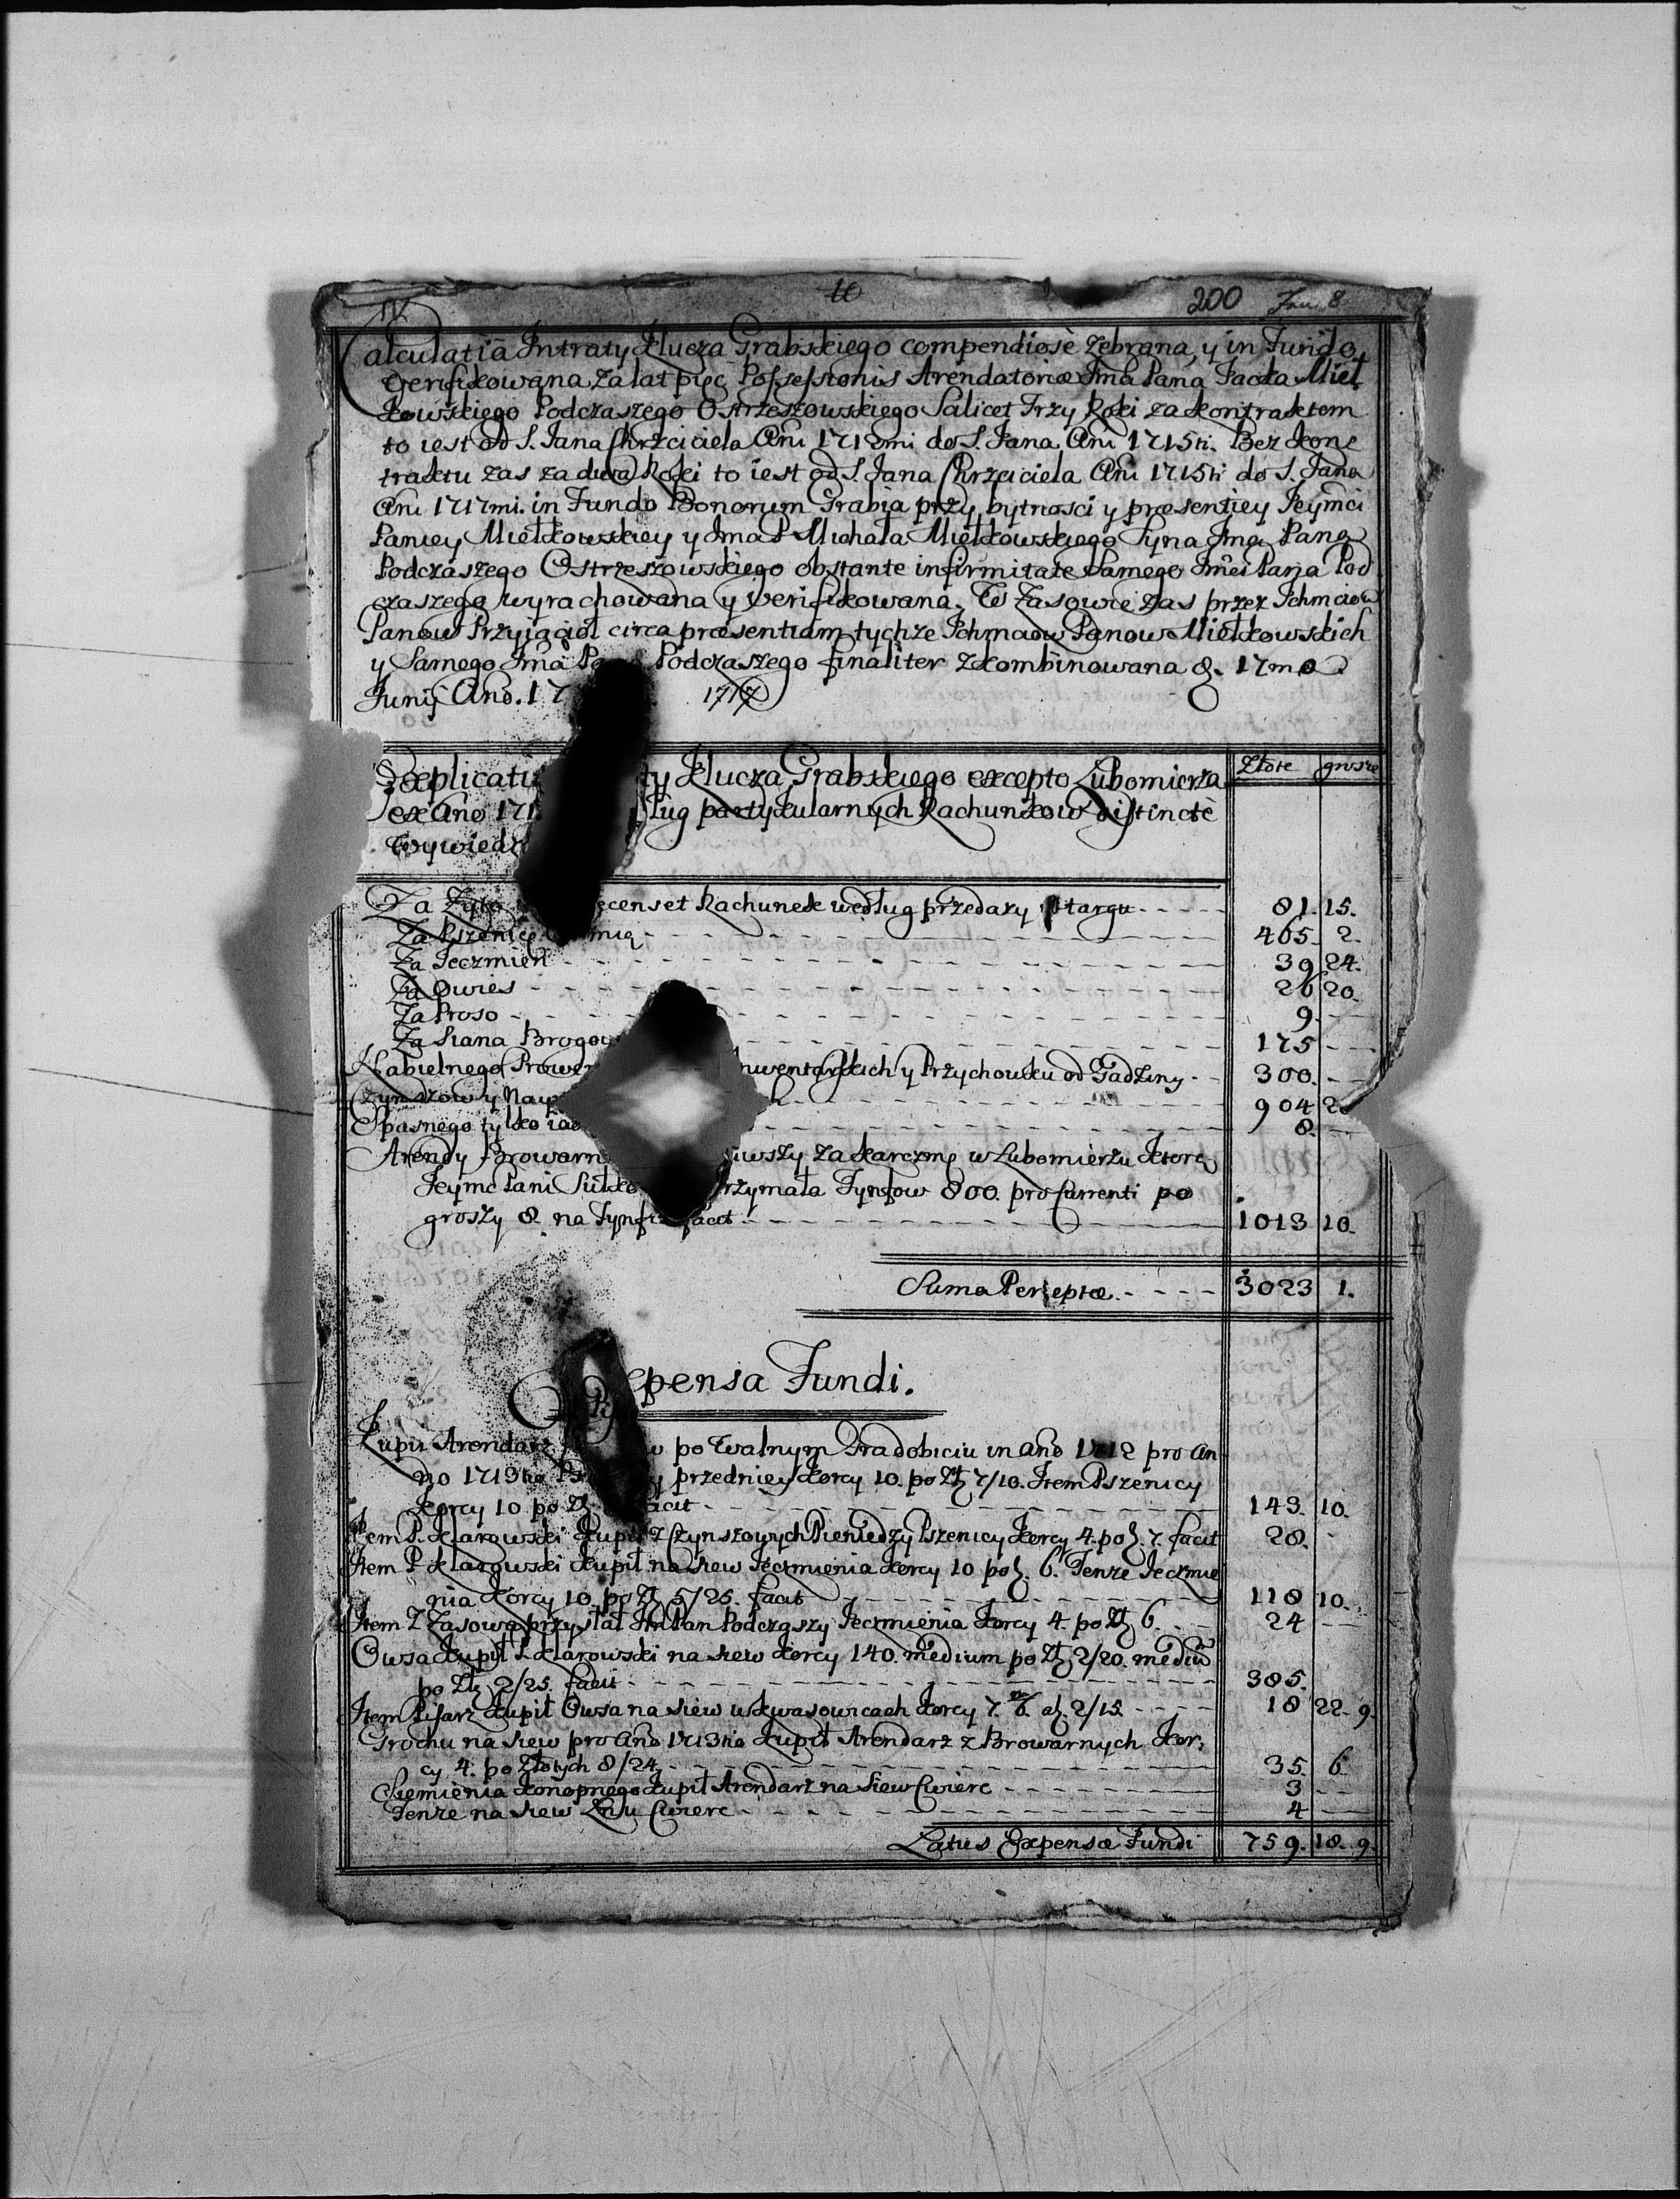 IV. 10 200 Inv 8
Calculatia Intraty Klucza Grabskiego compendiosè zebrana, y in Fundo
Verifikowana, za lat pięc Possessionis Arendatoriæ Jmći Pana Jacka Mieł
kowskiego Podczaszego Ostrzeszowskiego Scilicet Trzy Roki za kontraktem
to iest od S. Jana Chrzciciela Anú 1712mi do S. Jana Anú 1715ti. Bez kon-
traktu zas za dwa Roki to iest od S. Jana Chrzciciela Anú 1715ti do S. Jana
Anú 1717mi. in Fundo Bonorum Grabia przy bytnosci y præsentiey Jeymći
Paniey Miełkowskiey y Jmći P. Michała Miełkowskiego Syna Jmći Pana
Podczaszego Ostrzeszowskiego obstante infirmitate Samego Jmći Pana Pod
czaszego wyrachowana y Verifikowana. W Zasowie zas przez Ichmciow
Panow Przyiacioł circa præsentiam tychze Ichmciow Panow Miełkowskich
y Samego Jmći Podczaszego finaliter zkombinowana d. 17ma
Junij Ano. 17 1717
Explicatio ty Klucza Grabskiego excepto Lubomierza Złote grosze
ex Ano 171 ług partykularnych Rachunkow distinctè
wywiedz
Za Zyto recenset Rachunek według przedazy targu 81. 15.
Za Pszenicę mią 465. 2.
Za Jęczmien 39 24.
Za Owies 26 20.
Za Proso 9.
Za Siana Brogow 175
Nabielnego Prowen nwentarskich y Przychowku od Gadziny 300.
Czynszow y Nay 904
Spasnego tylko 8.
Arendy Browarn iwszy za karczmę w Lubomierzu ktorą
Jeymć Pani Sułko rzymała Tynfow 800. pro Currenti po
groszy 8. na Tynf facit 1013 10.
Suma Perceptæ 3023 1.
Expensa Fundi.
Kupił Arendarz w po walnym Gradobiciu in Ano 1712 pro An-
no 1713tio przedniey korcy 10. po Zł 7/10. Item Pszenicy
korcy 10 po Zł facit 143. 10.
Item P. Klarowski kupił z Czynszowych Pieniędzy Pszenicy korcy 4. po Zł. 7. facit 28.
Item P Klarowski kupił na siew Jęczmienia korcy 10 po Zł. 6. Tenze Jęczmie
nia korcy 10. po Zł 5/25. facit 118 10.
Item Z Zasowa przysłał Jm Pan Podczaszy Jęczmienia korcy 4. po Zł 6. 24
Owsa kupił P. Klarowski na siew korcy 140. medium po Zł 2/20. mediū
po Zł 2/25. facit 385.
Item Pisarz kupił Owsa na siew w Kwasowicach korcy 7. 2/15 18 22. 9.
Grochu na siew pro Ano 1713tio kupił Arendarz z Browarnych kor-
cy 4. po Złotych 8/24 35. 6.
Siemienia konopnego kupił Arendarz na siew Cwierć 3
Tenze na siew Lnu Cwierć 4
Latus Expensæ Fundi 759. 18. 9.